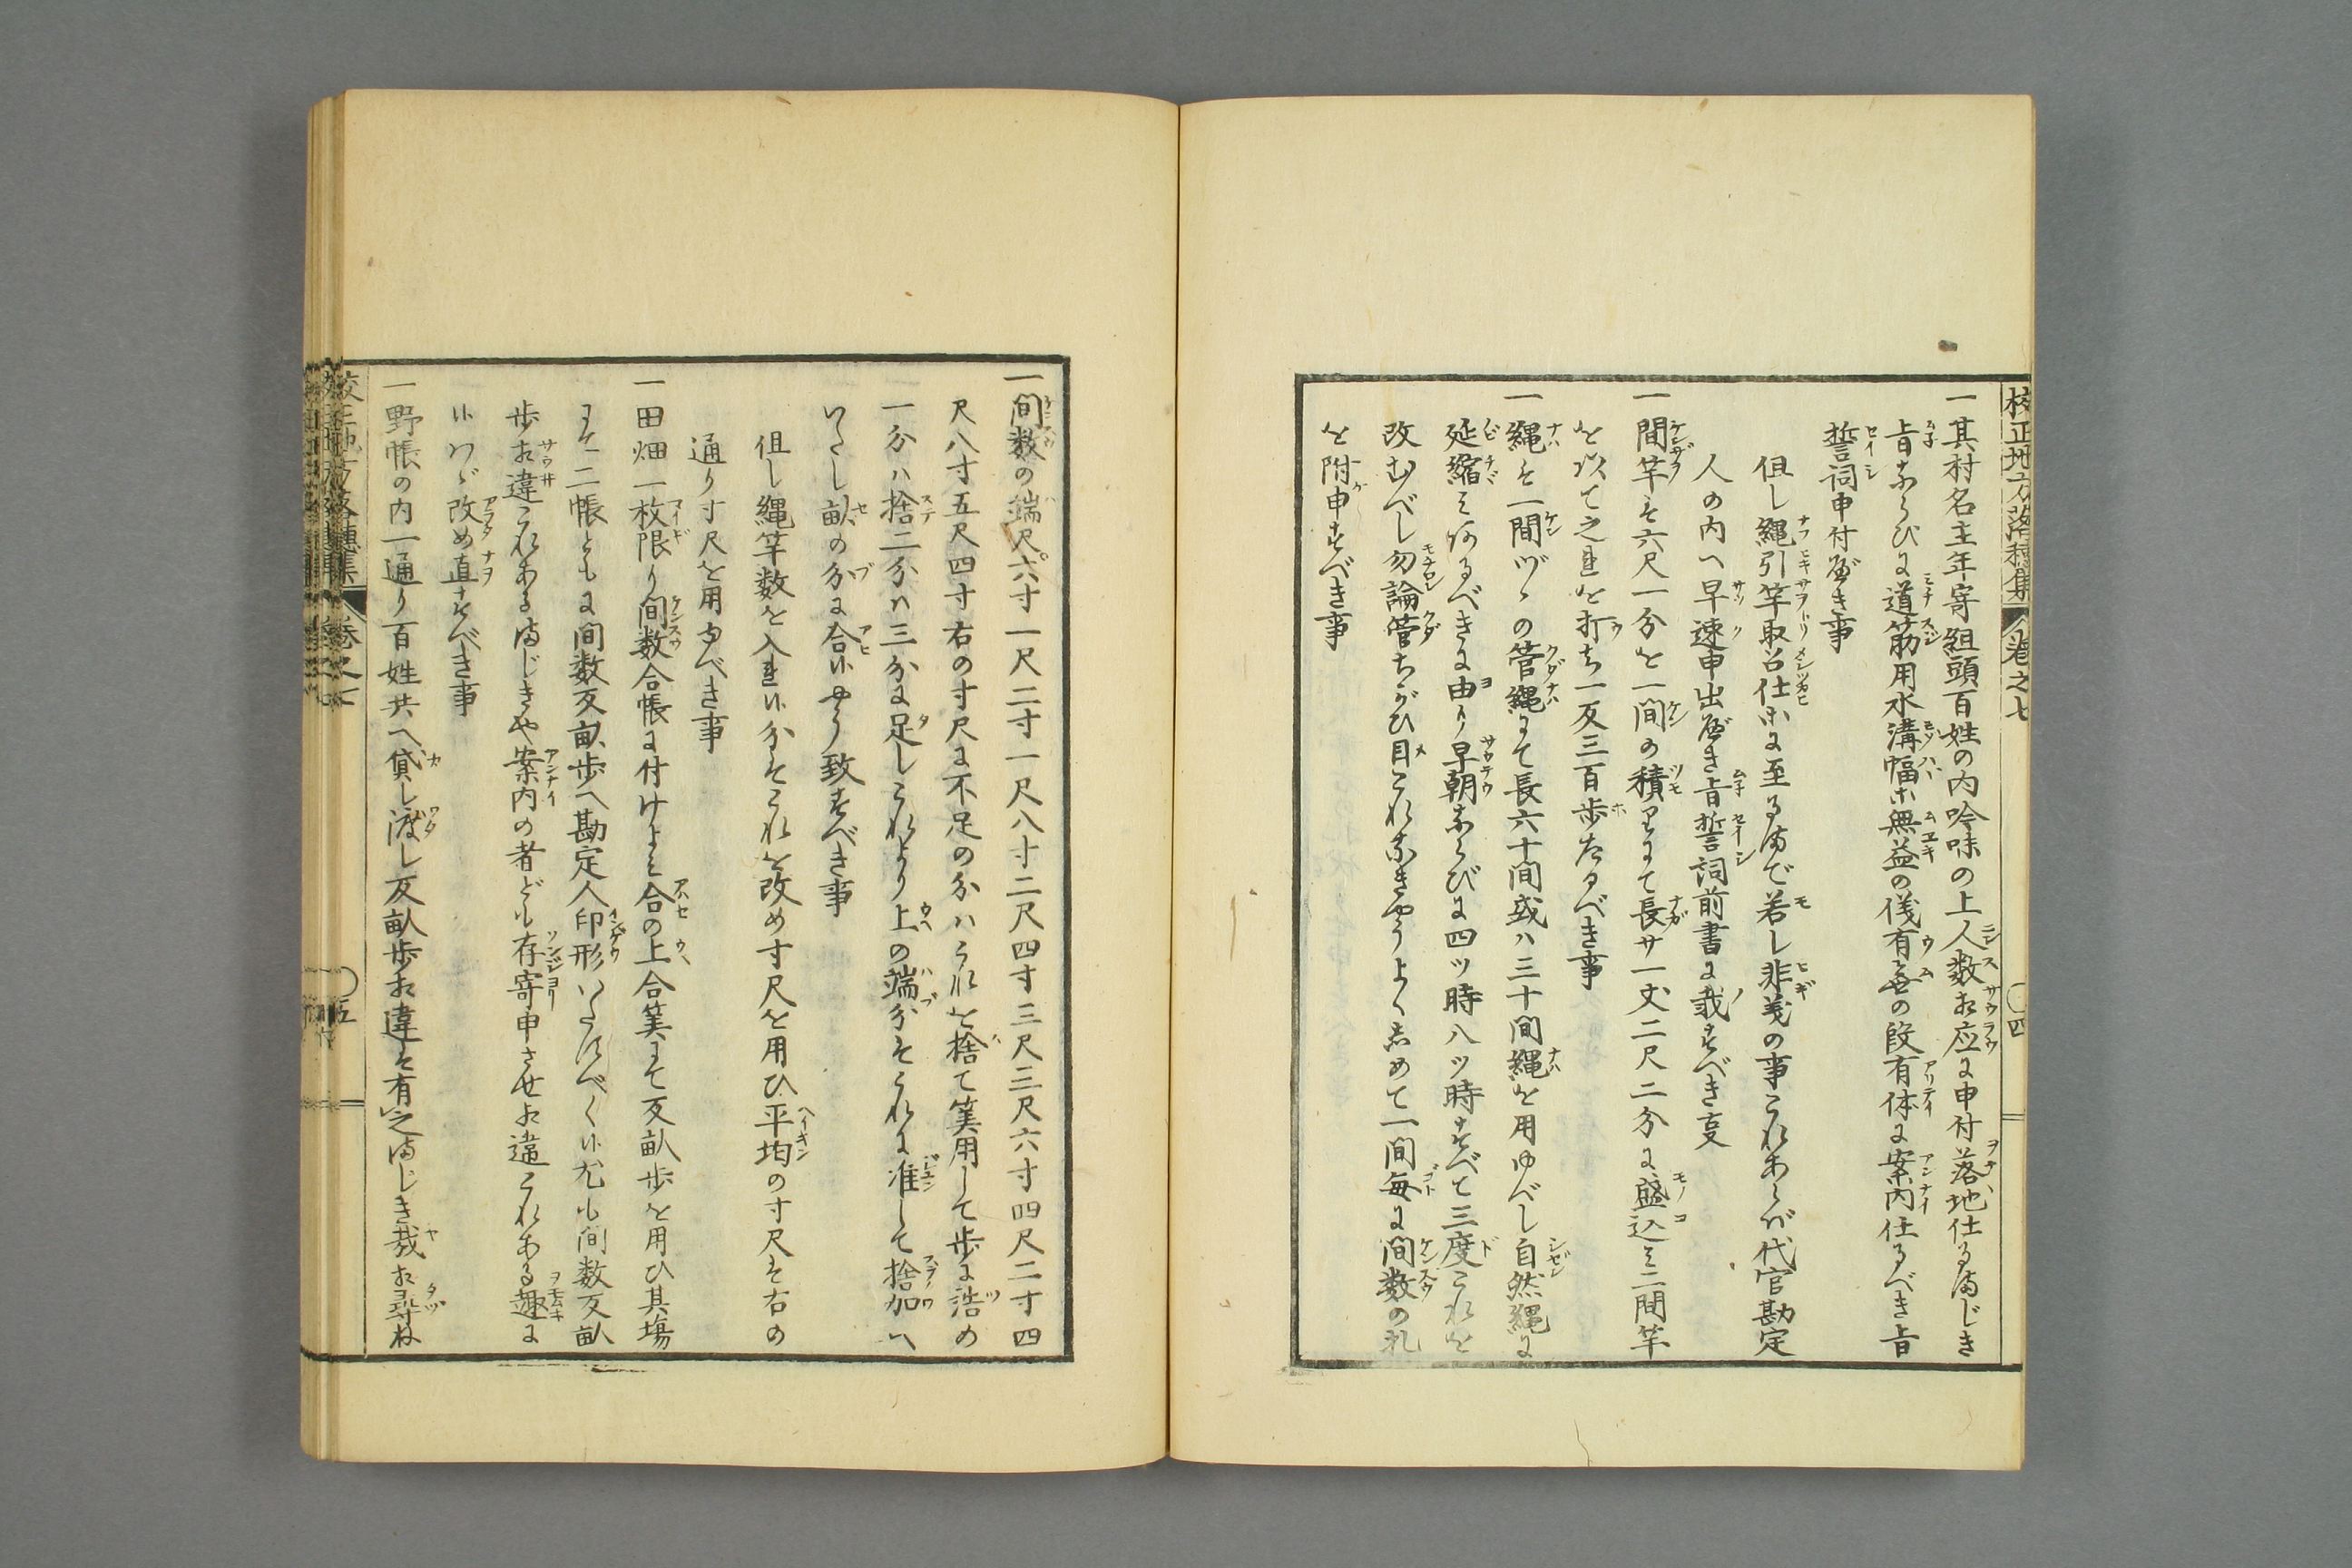 校正地方落穂集 巻之七 〇四
一其村名主年寄組頭百姓の内吟味の上人数相応に申付落地仕るまじき
旨ならびに道筋用水溝幅等無益の儀有無の段有体に案内仕るべき旨
誓詞申付べき事
但し縄引竿取召仕等に至るまで若し非義の事これあらば代官勘定
人の内へ早速申出べき旨誓詞前書に載すべき事
一間竿は六尺一分を一間の積りにて長サ一丈二尺二分に盛込み二間竿
を以て之れを打ち一反三百歩たるべき事
一縄は一間づゝの管縄にて長六十間或ハ三十間縄を用ゆべし自然縄に
延縮みあるべきに由り早朝ならびに四ツ時八ツ時すべて三度これを
改むべし勿論管ちがひ目これなきやうよくしめて一間毎に間数の札
を附申すべき事
一間数の端尺六寸一尺二寸一尺八寸二尺四寸三尺三尺六寸四尺二寸四
尺八寸五尺四寸右の寸尺に不足の分ハこれを捨て算用して歩に詰め
一分ハ捨二分ハ三分に足しこれより上の端分はこれに准して捨加へ
いたし畝の分に合候やう致すべき事
但し縄竿数を入れ候分はこれを改め寸尺を用ひ平均の寸尺は右の
通り寸尺を用ゆべき事
一田畑一枚限り間数合帳に付けよみ合の上合算にて反畝歩を用ひ其場
にて二帳ともに間数反畝歩へ勘定人印形いたすべく候尤も間数反畝
歩相違これあるまじきや案内の者ども存寄申させ相違これある趣に
候わゞ改め直すべき事
一野帳の内一通り百姓共へ貸し渡し反畝歩相違は有之まじき哉相尋ね
校正地方落穂集 巻之七 〇五